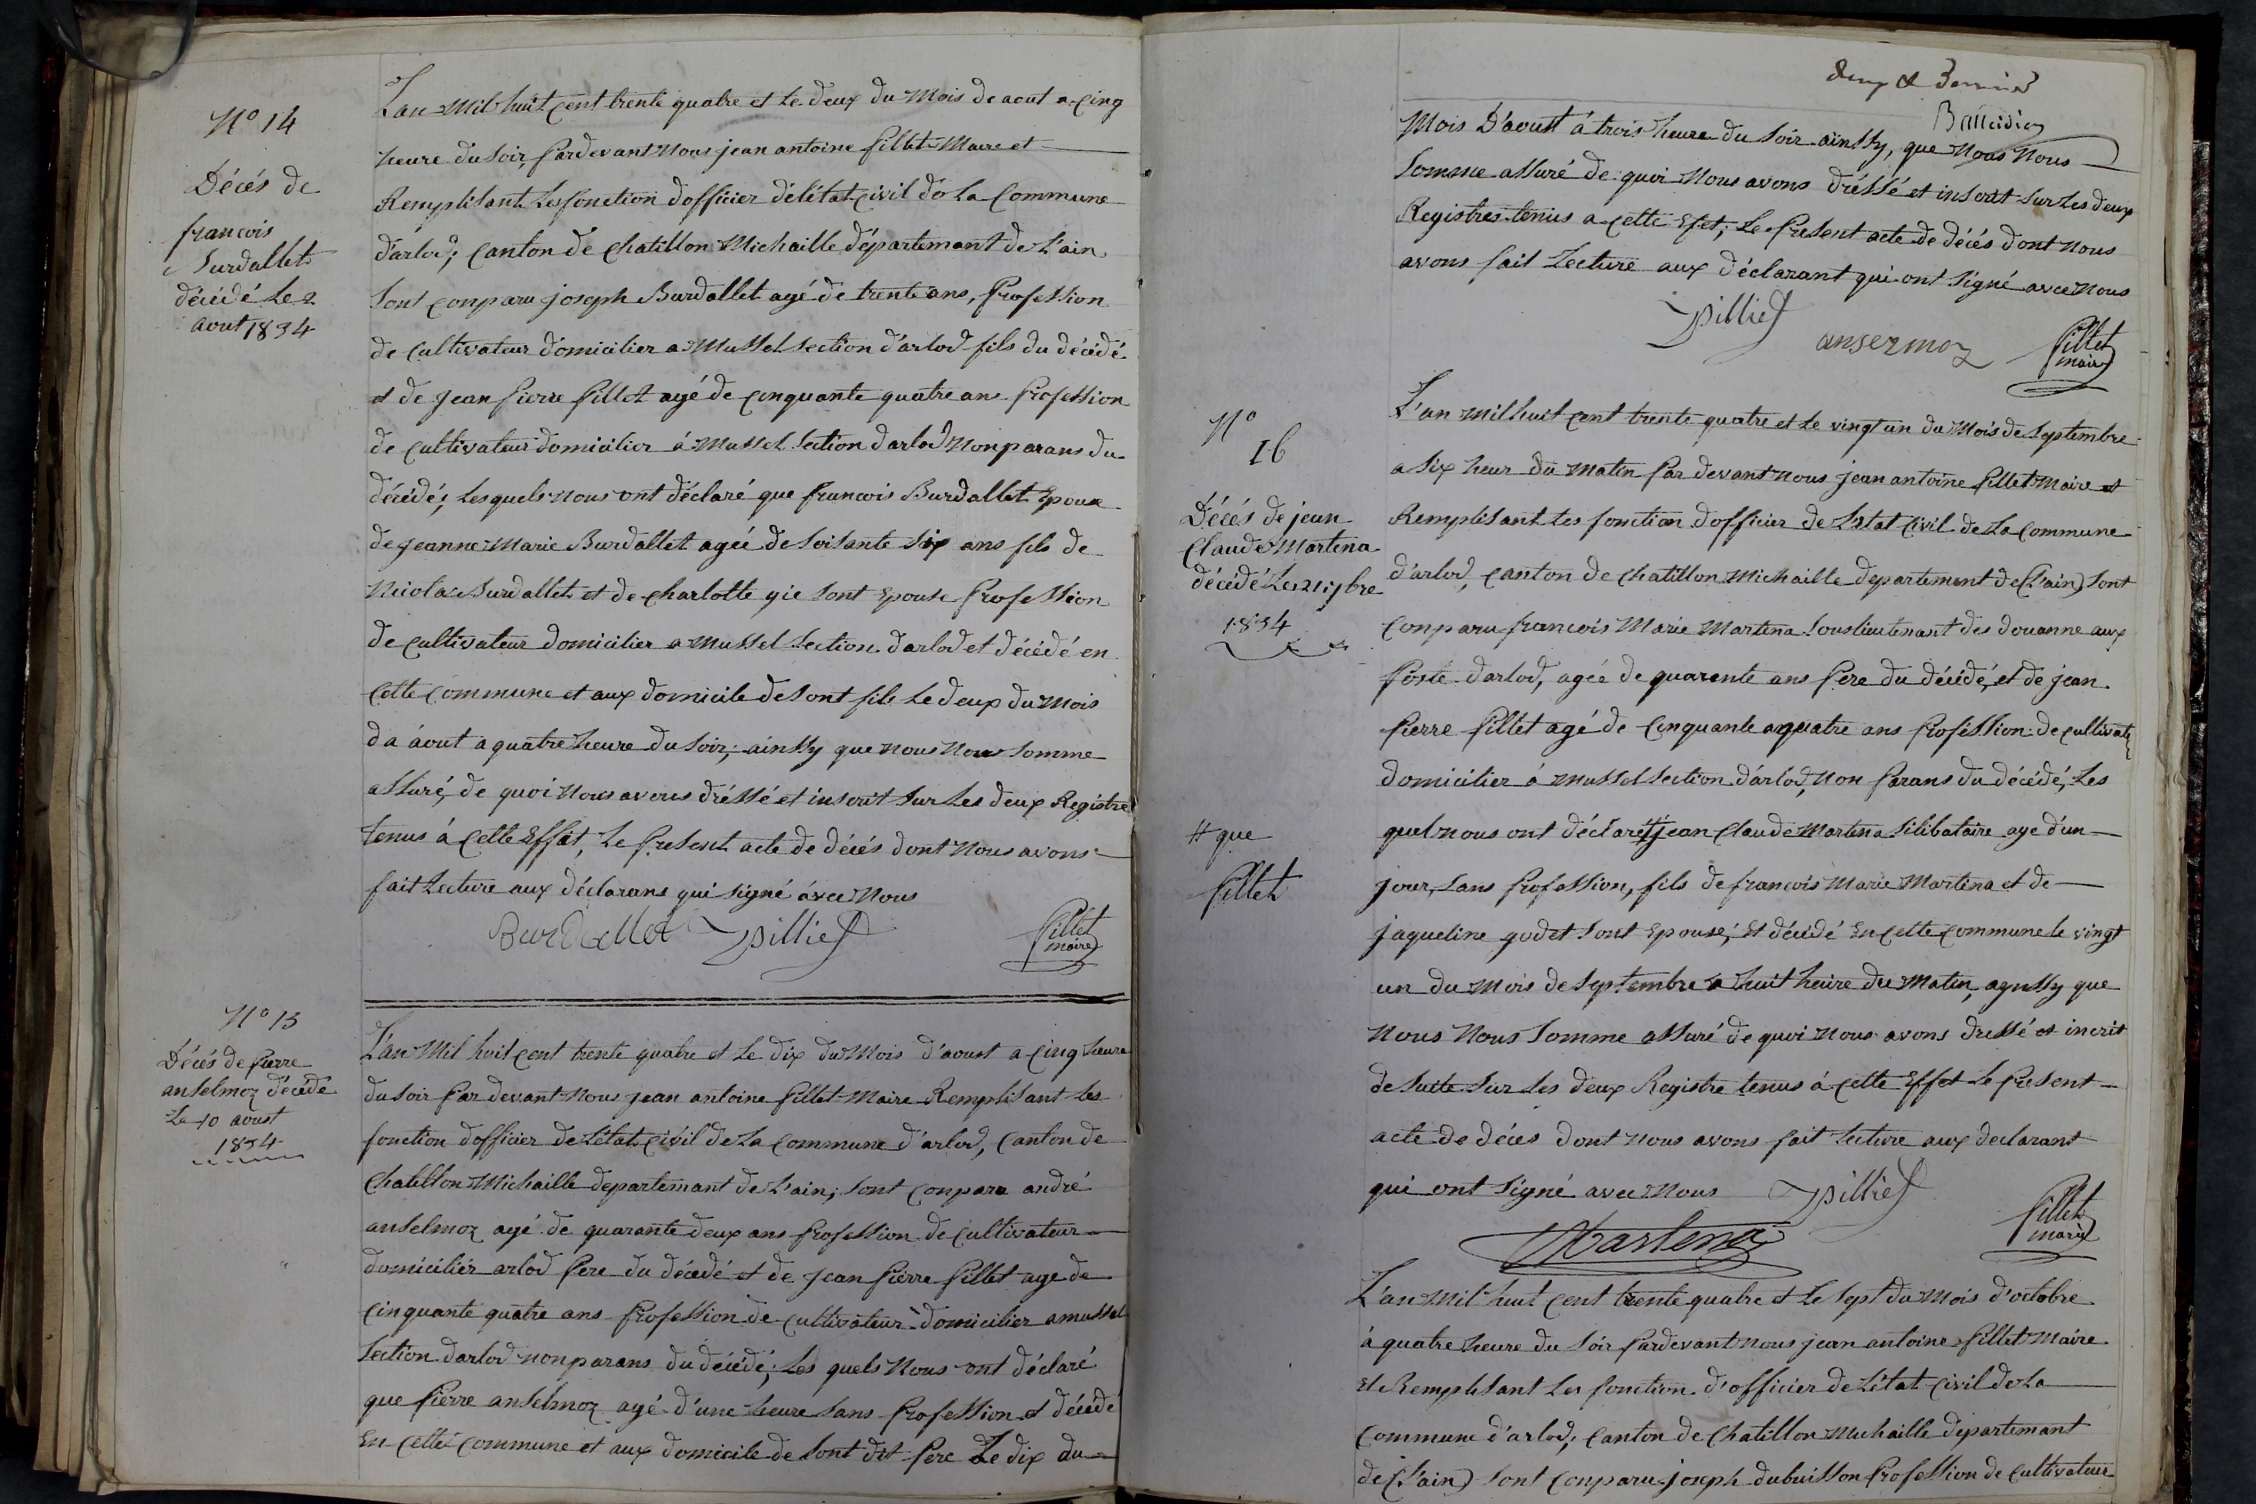 N° 14
Décés de
francois
Burdallet
décédé le 2
aout 1834
L'an mil huit cent trente quatre et le deux du mois de aout a cinq
heure du soir, pardevant nous jean antoine fillet maire et
Remplisant les fonction d'officier de l'état civil de la Commune
d'arlod; Canton de chatillon Michaille département de L'ain
sont conparu joseph Burdallet agé de trente ans, profession
de cultivateur domicilier a Mussel section d'arlod fils du décédé
et de jean pierre fillet agé de cinquante quatre ans profession
de cultivateur domicilier á Mussel section darlod Non parans du
décédé; lesquels nous ont déclaré que francois Burdallet Epoux
de jeanne Marie Burdallet ageé de soisante six ans fils de
Nicolas Burdallet et de charlotte gie sont Epouse profession
de cultivateur domicilier a mussel section darlod et décédé en
cette commune et aux domicile de sont fils le deux du mois
da áout a quatre heure du soir; ainssy que nous nous somme
assuré, de quoi nous avons dréssé et inscrit sur les deux Registre
tenus á cette Effet, le present acte de décés dont nous avons
fait lecture aux déclarans qui signé ávec nous
Burdallet pillief fillet
maire
N° 15
Décés de pierre
anselmoz décédé
le 10 aoust
1834
L'an mil huit cent trente quatre et le dix du mois d'aoust a cinq heure
du soir par devant nous jean antoine fillet maire Remplisant les
fonction dofficier de l'état civil de la commune d'arlod, canton de
chatillon Michaille departemant de l'ain; sont conparu andré
anselmoz agé de quarante deux ans profession de cultivateur
domicilier arlod pere du décédé et de jean pierre fillet age de
cinquante quatre ans profession de cultivateur domicilier a mussel
section darlod non parans du décédé; les quels nous ont déclaré
que pierre anselmoz agé d'une heure sans profession et décédé
En cette commune et aux domicile de sont dit pere Le dix du
mois d'aoust á trois heure du soir ainssy, que nous nous
somme assuré de quoi nous avons dréssé et inscrit sur les deux
Registres tenus a cette Efet; le present acte de décés dont nous
avons fait lecture aux déclarant qui ont signé avec nous
pillief ansermoz fillet
maire
N°
16
Décés de jean
Claude Martena
décédé le 21 7bre
1834
L'an mil huit cent trente quatre et le vingt un du mois de septembre
a six heur du matin par devant nous jean antoine fillet maire et
Remplisant les fonction dofficier de l'état civil de la commune
d'arlod, canton de chatillon Michaille departement de (l'ain) sont
conparu francois Marie Martena souslieutenant des douanne aux
poste darlod, ageé de quarente ans pere du décédé, et de jean
pierre fillet agé de cinquante aquatre ans profession de cultivate
domicilier á mussel section d'arlod, non parans du décédé, les
quel nous ont déclaré # jean Claude Martena silibataire age d'un
# que
fillet
jour, sans profession, fils de francois Marie Martena et de
jaqueline godet sont Epouse; Et décédé En cette commune le vingt
un du mois de septembre a huit heure du matin, aynssy que
nous nous somme assuré de quoi nous avons dressé et incrit
de suite sur les deux Registre tenus á cette Effet le present
acte de déces dont nous avons fait lecture aux declarant
qui ont signé avec nous pillief fillet
maire
Martena
L'an mil huit cent trente quatre et le sept du mois d'octobre
à quatre heure du soir pardevant nous jean antoine fillet maire
Et Remplisant les fonction d'officier de l'état civil de la
commune d'arlod; canton de chatillon Michaille departemant
de (l'ain) sont conparu joseph dubuisson profession de cultivateur